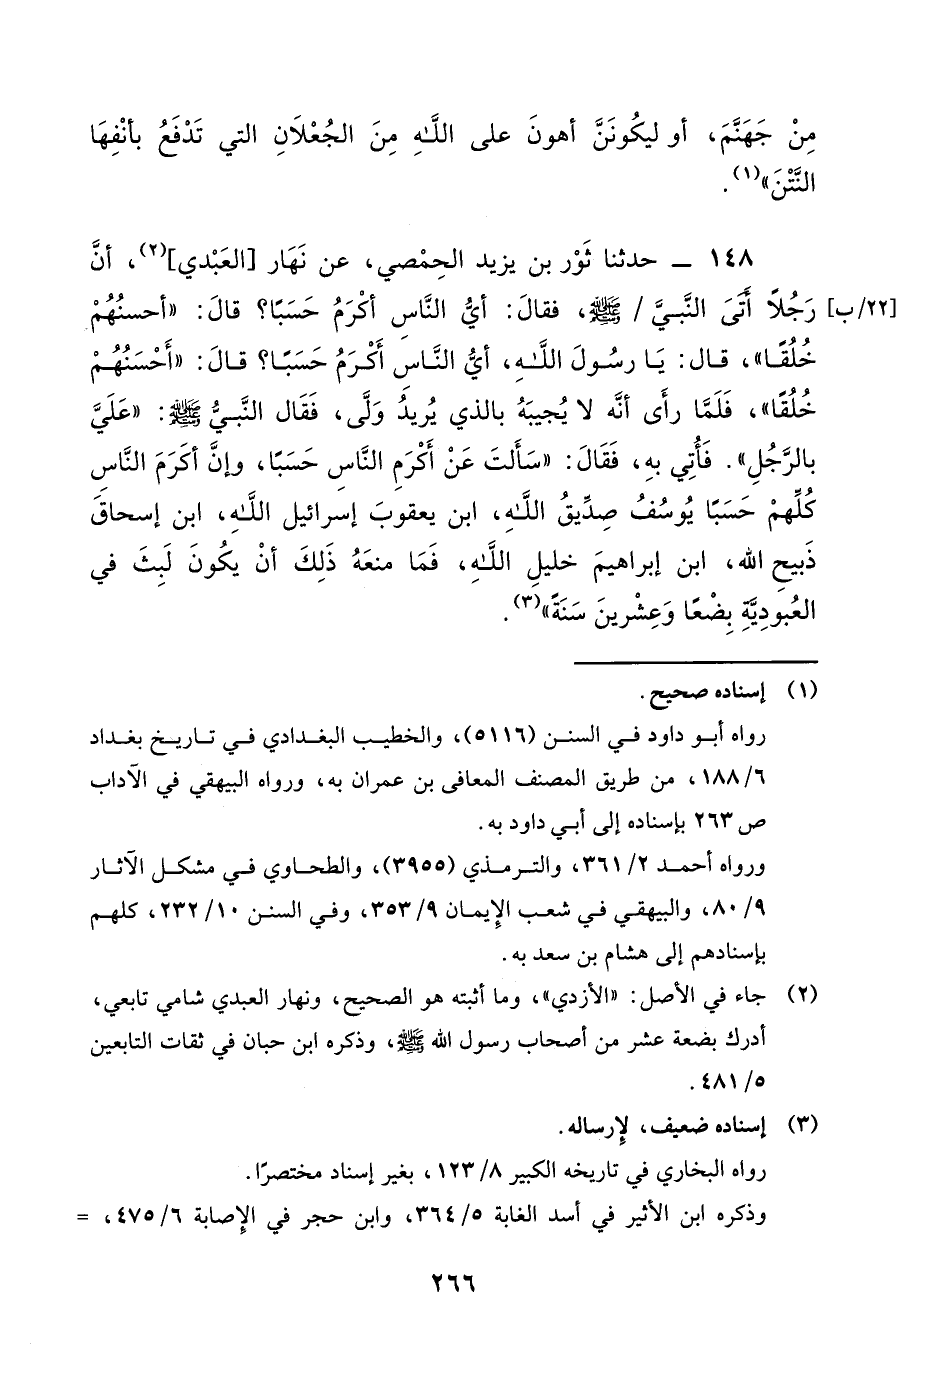 مِنْ جَهَنَّمَ، أو ليكُونَنَّ أهونَ على اللَّهِ مِنَ الجُعْلَانِ التي تَدْفَعُ بأنْفِهَا
النَّتْنَ»(١).
١٤٨ ـ حدثنا ثَوْر بن يزيد الحِمْصي، عن نَهَار [العَبْدي](٢)، أنَّ
[٢٢/ب] رَجُلاً أَتَىَ النَّبيَّ / ﷺ، فقالَ: أيُّ النَّاسِ أكْرَمُ حَسَبًا؟ قالَ: «أحسنُهُمْ
خُلُقًا»، قال: يَا رسُولَ اللَّهِ، أيُّ النَّاسِ أكْرَمُ حَسَبًا؟ قالَ: «أَحْسَنُهُمْ
خُلُقًا»، فَلَمَّا رأَى أنَّه لا يُجيبَهُ بالذي يُريدُ وَلَّى، فَقَال النَّبيُّ ﷺ: «عَلَيَّ
بالرَّجُلِ». فَأُتِي بِهِ، فَقَالَ: «سَأَلتَ عَنْ أَكْرَمِ النَّاسِ حَسَبًا، وإنَّ أكرَمَ النَّاسِ
كُلِّهِمْ حَسَبًا يُوسُفُ صِدِّيقُ اللَّهِ، ابن يعقوبَ إسرائيل اللَّهِ، ابن إسحاقَ
ذَبيحِ الله، ابن إبراهيمَ خليلِ اللَّهِ، فَمَا منعَهُ ذَلِكَ أنْ يكُونَ لَبِثَ في
العُبودِيَّةِ بِضْعًا وَعِشْرينَ سَنَةً»(٣).
(١) إسناده صحيح.
رواه أبو داود في السنن (٥١١٦)، والخطيب البغدادي في تاريخ بغداد
٦/ ١٨٨، من طريق المصنف المعافى بن عمران به، ورواه البيهقي في الآداب
ص ٢٦٣ بإسناده إلى أبي داود به.
ورواه أحمد ٢/ ٣٦١، والترمذي (٣٩٥٥)، والطحاوي في مشكل الآثار
٩/ ٨٠، والبيهقي في شعب الإيمان ٩/ ٣٥٣، وفي السنن ١٠/ ٢٣٢، كلهم
بإسنادهم إلى هشام بن سعد به.
(٢) جاء في الأصل: «الأزدي»، وما أثبته هو الصحيح، ونهار العبدي شامي تابعي،
أدرك بضعة عشر من أصحاب رسول الله ﷺ، وذكره ابن حبان في ثقات التابعين
٥/ ٤٨١.
(٣) إسناده ضعيف، لإرساله.
رواه البخاري في تاريخه الكبير ٨/ ١٢٣، بغير إسناد مختصرًا.
وذكره ابن الأثير في أسد الغابة ٥/ ٣٦٤، وابن حجر في الإصابة ٦/ ٤٧٥، =
٢٦٦